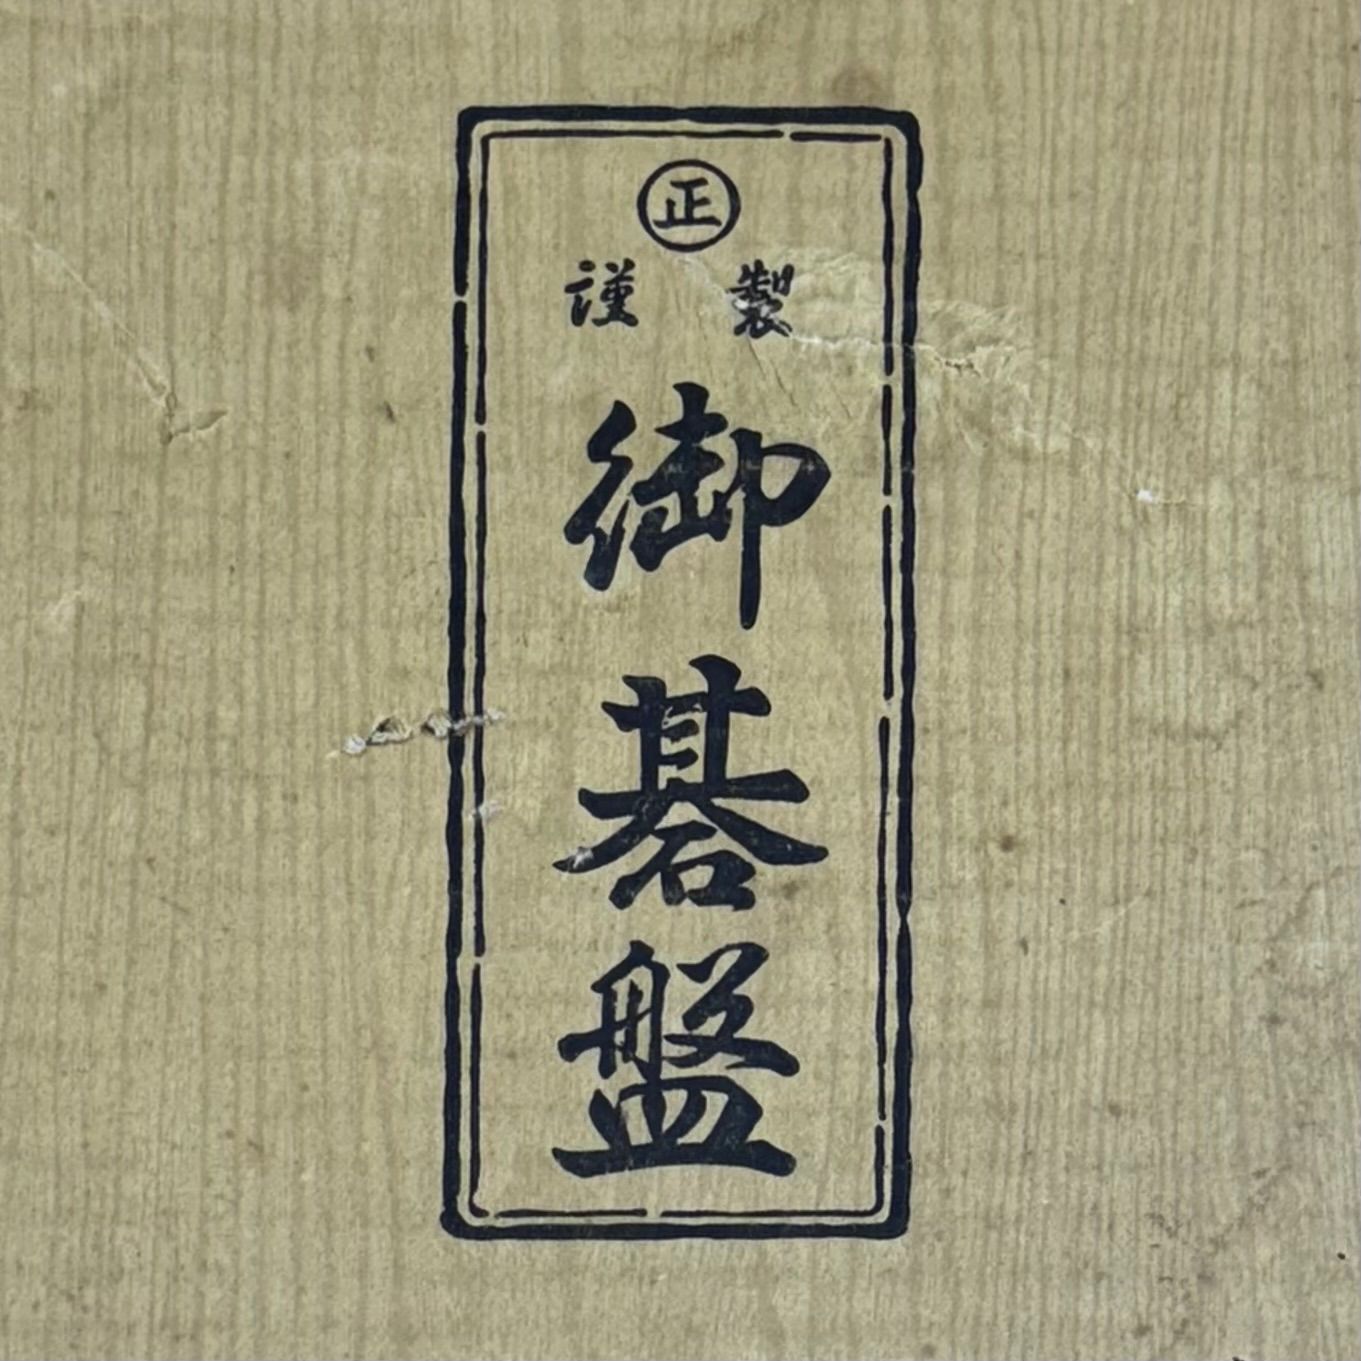 ㊣
謹製
御碁盤